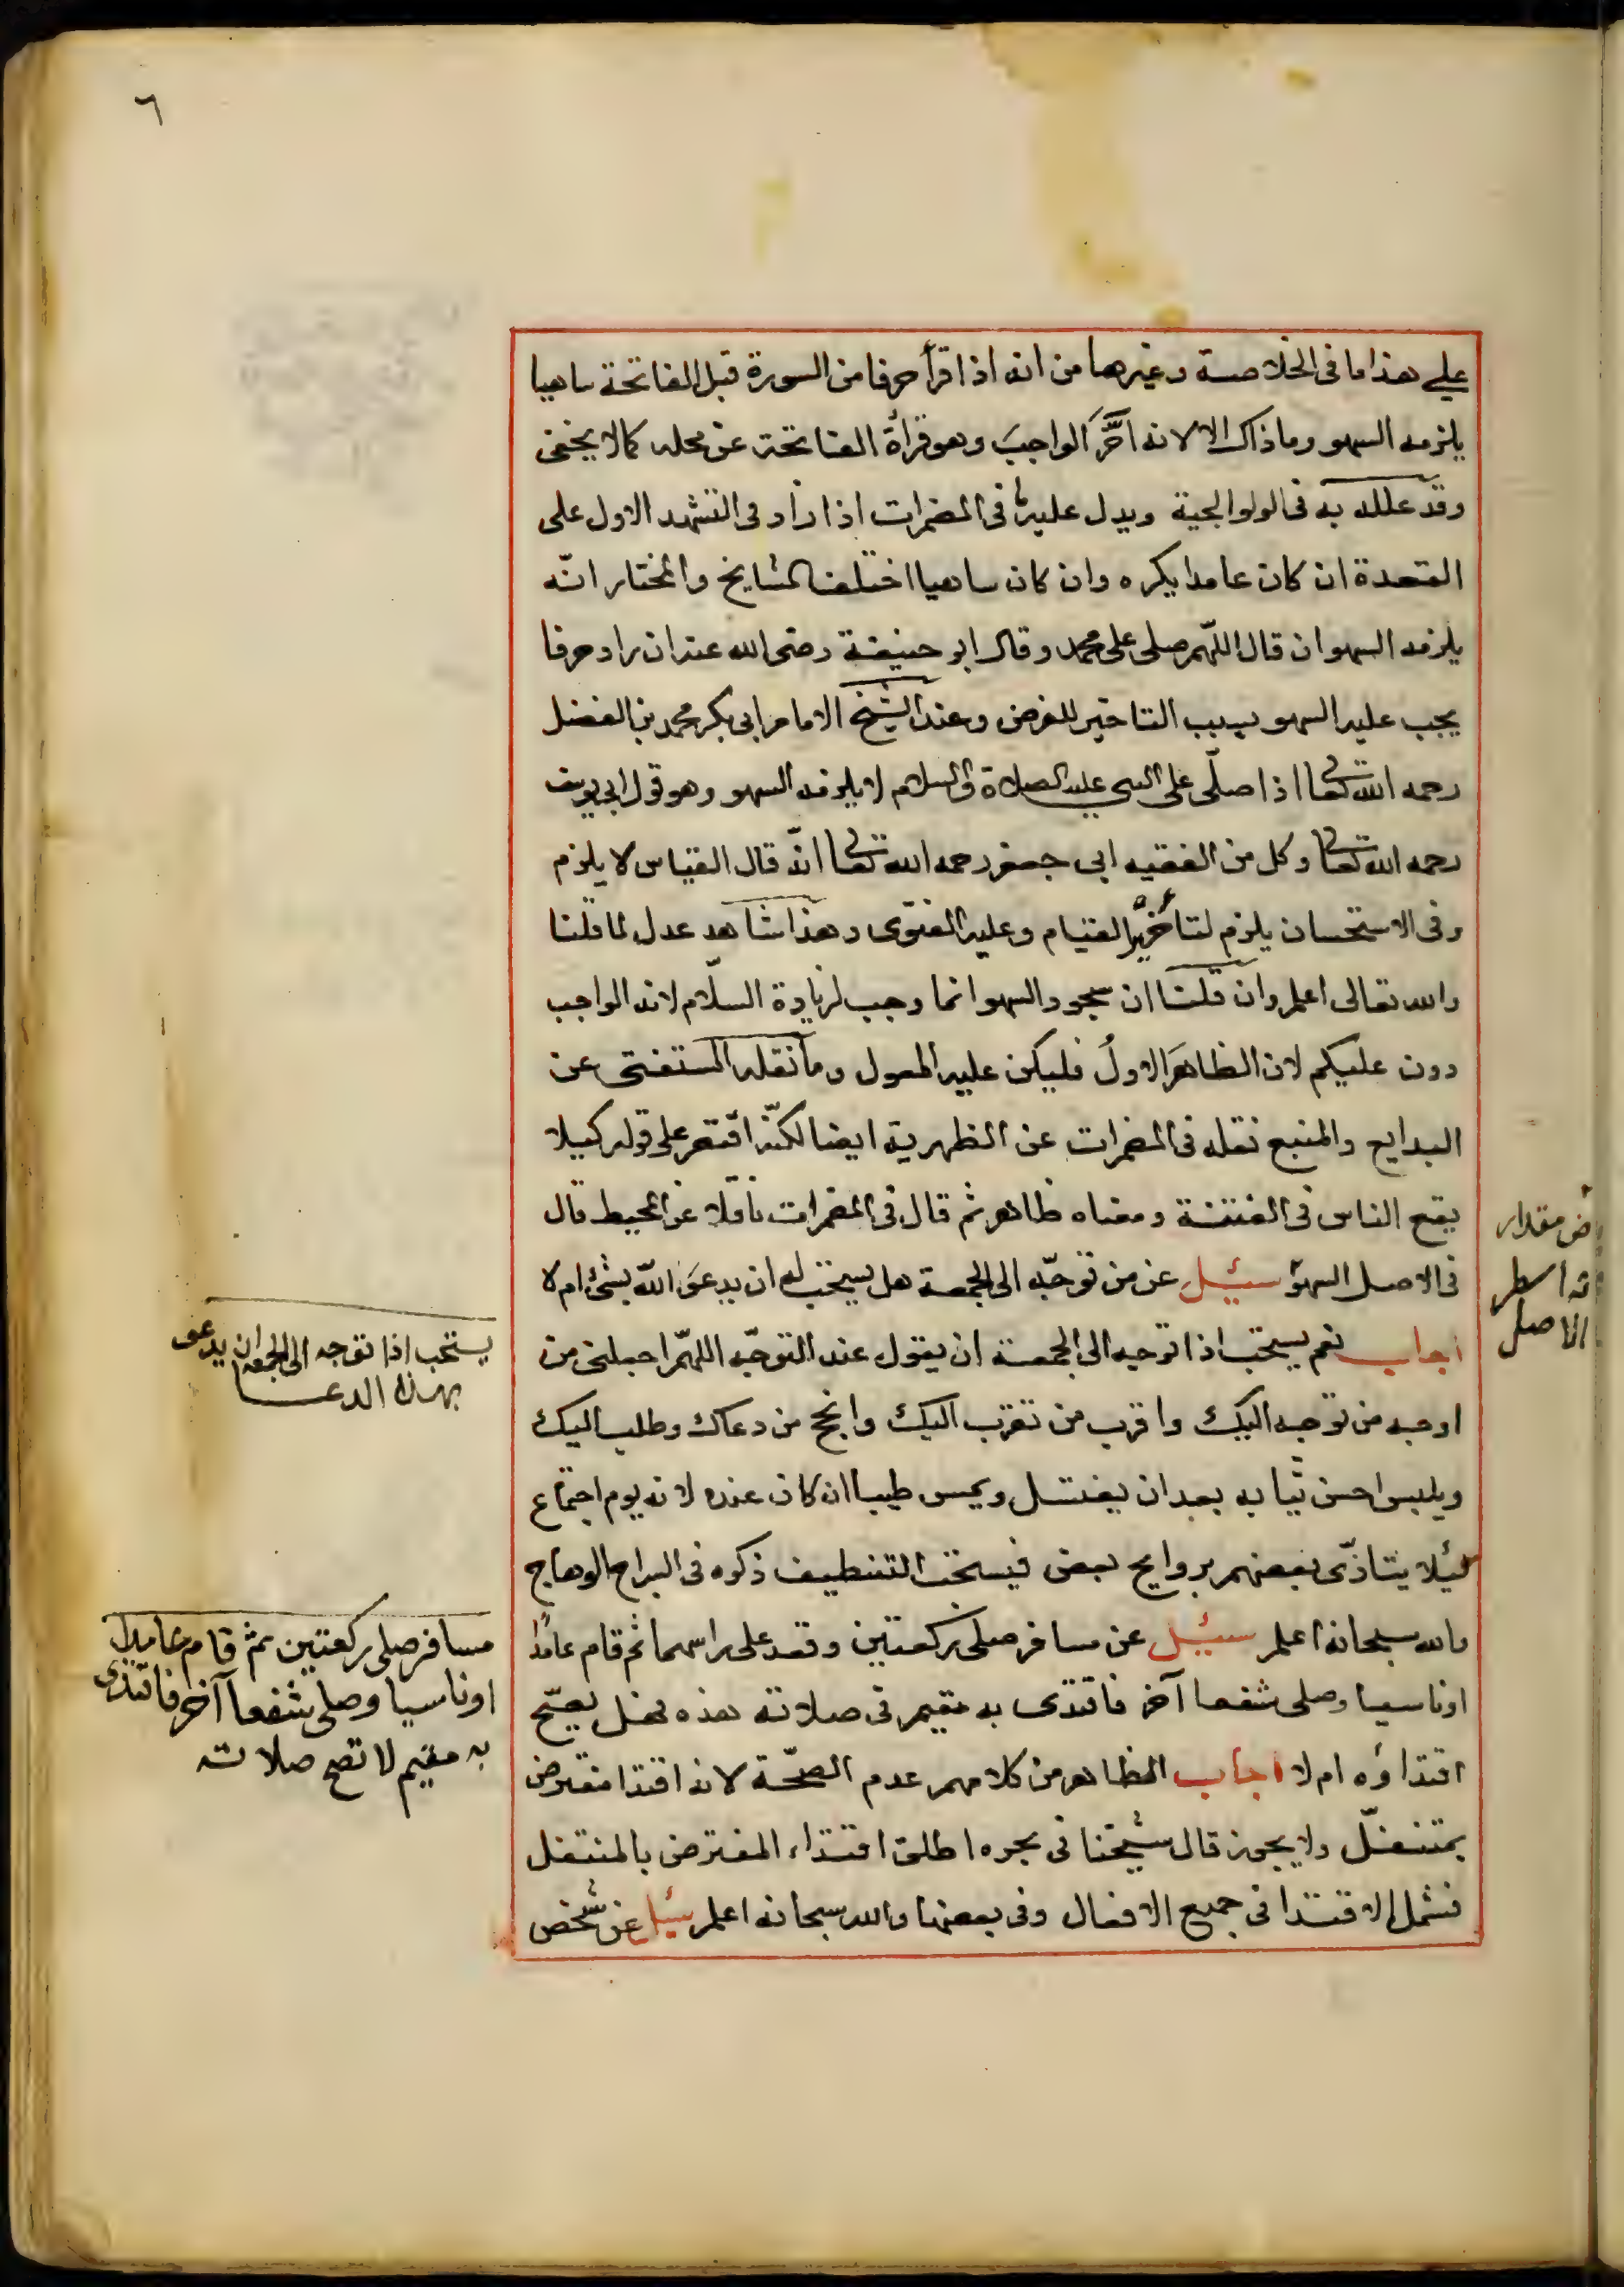 ٦
على هذا ما فى الخلاصة وغيرها من انه اذا قرأ حرفا من السورة قبل الفاتحة ساهيا
يلزمه السهو وما ذاك الا لانه اخَّرَ الواجبَ وهو قرأة الفاتحة عن محله كما لا يخفى
وقد علله به فى الولوالجية ويدل عليه فى المضمرات اذا زاد فى التشهد الاول على
القعدة ان كان عامدا يكره وان كان ساهيا اختلف المشايخ والمختار انّه
يلزمه السهو ان قال اللّهم صلى على محمد وقال ابو حنيفة رضى الله عنه ان زاد حرفا
يجب عليه السهو بسبب التاخير للفرض وعند الشيخ الامام ابى بكر محمد بن الفضل
رحمه الله تعالى اذا صلّى على النبي عليه الصلاة والسلام لا يلزمه السهو وهو قول ابى يوسف
رحمه الله تعالى وكل من الفقيه ابى جعفر رحمه الله تعالى انّه قال القياس لا يلزم
وفى الاستحسان يلزم لتاخير القيام وعليه الفتوى وهذا شاهد عدل لما قلنا
والله تعالى اعلم وان قلنا ان سجود السهو انما وجب لزيادة السلام لانه الواجب
دون عليكم لان الظاهرَ الاولُ فليكن عليه المعول وما نقله المستفتى عن
البدايع والمنبع نقله فى المضمرات عن الظهرية ايضا لكنّه اقتصر على قوله كيلا
يقع الناس فى الفتنة ومعناه ظاهر ثم قال فى المضمرات ناقلا عن المحيط قال
فى الاصل السهو سئيل عن من توجّه الى الجمعة هل يستحب له ان يدعوَ اللّه بشئ ام لا
اجاب نعم يستحب اذا توجه الى الجمعة ان يقول عند التوجّه اللهمّ اجعلنى من
اوجه من توجه اليك واقرب من تقرب اليك وانجح من دعاك وطلب اليك
ويلبس احسن ثيابه بعد ان يغتسل ويمس طيبا ان كان عنده لانه يوم اجتماع
لئيلا يتاذّى بعضهم بروايح بعض فيستحب التنظيف ذكره فى السراج الوهاج
والله سبحانه اعلم سئيل عن مسافر صلى ركعتين وقعد على راسهما ثم قام عامدًا
او ناسيا وصلى شفعا آخر فاقتدى به مقيم فى صلاته هذه فهل يصحّ
اقتداؤه ام لا اجاب الظاهر من كلامهم عدم الصحّة لانه اقتدا مفترض
بمتنفلّ ولا يجوز قال شيخنا فى بحره اطلق اقتداء المفترض بالمتنفل
فشمل الاقتدا فى جميع الافعال وفى بعضها والله سبحانه اعلم سئيل عن شخص
يستحب اذا توجه الى الجمعه ان يدعى
بهذا الدعا
مسافر صلى ركعتين ثم قام عامدا
او ناسيا وصلى شفعا آخر فاقتدى
به مقيم لا تصح صلاته
مقدار
الاصل